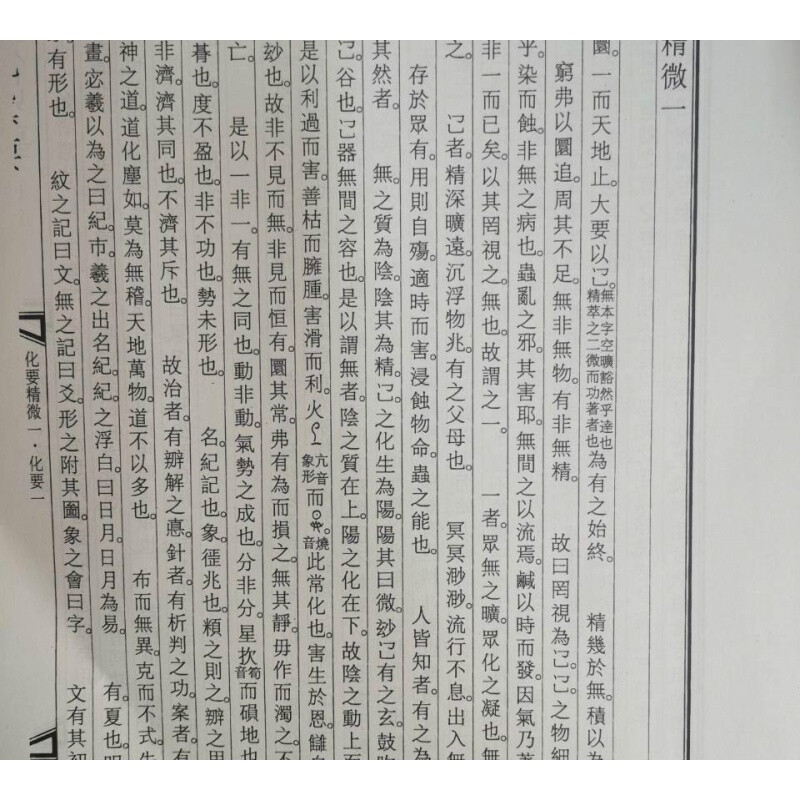 精微一
圜。一而天地止。大要以㔾。無本字空曠豁然乎達也精萃之二微而功著者也為有之始終。 精幾於無。積以為
窮弗以圜追。周其不足。無非無物。有非無精。 故曰罔視為㔾。㔾之物細
乎。染而蝕。非無之病也。蟲亂之邪。其害耶。無間之以流焉。鹹以時而發。因氣乃著
非一而已矣。以其罔視之。無也。故謂之一。 一者。眾無之曠。眾化之凝也。無
之。 㔾者。精深曠遠。沉浮物兆。有之父母也。 冥冥渺渺。流行不息。出入無
存於眾有。用則自殤。適時而害。浸蝕物命。蟲之能也。 人皆知者。有之為
其然者。 無之質為陰。陰其為精。㔾之化生為陽。陽其曰微。玅㔾有之玄。鼓
㔾。谷也。㔾器無間之容也。是以謂無者。陰之質在上。陽之化在下。故陰之動上
是以利過而害。善枯而臃腫。害滑而利。火亢音象形而燒音此常化也。害生於恩。讎
玅也。故非不見而無。非見而恒有。圜其常。弗有為而損之。無其靜。毋作而濁之。不
亡。 是以一非一。有無之同也。動非動。氣勢之成也。分非分。星扻音筍而磒地也
晷也。度不盈也。非不功也。勢未形也。 名紀記也。象徑兆也。頪之則之。辦之用
非濟。濟其同也。不濟其斥也。 故治者。有辦解之悳。針者。有析判之功。案者。有
神之道。道化塵如。莫為無稽。天地萬物。道不以多也。 布而無異。克而不式。
畫。宓羲以為之曰紀。市。羲之出名紀。紀之浮白。曰日月。日月為易。 有。夏也。
有形也。 紋之記曰文。無之記曰爻。形之附其圖。象之會曰字。 文有其初
化要精微一·化要一